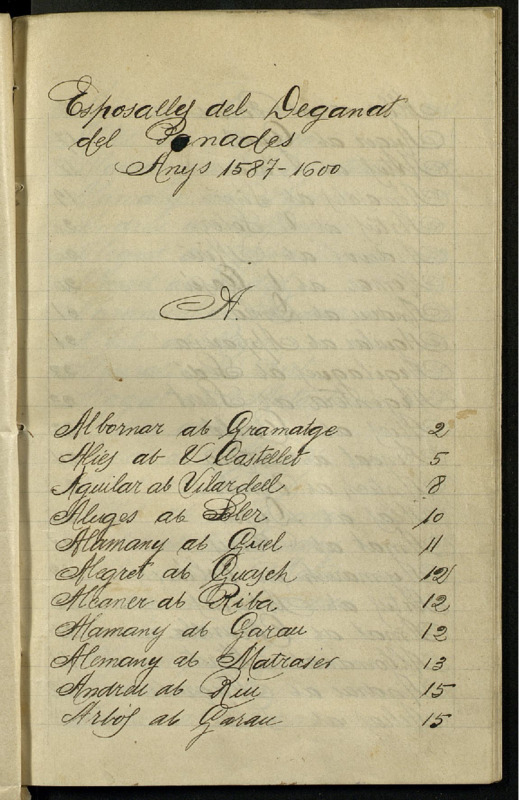 Esposalles del Deganat
del Panades
Anys 1587-1600
A.
Albornar ab Gramatge 2
Alies ab Castellet 5
Aguilar ab Vilardell 8
Aluges ab Soler 10
Alamany ab Guel 11
Alegret ab Guasch 12
Alcaner ab Riba 12
Alamany ab Garau 12
Alemany ab Matraser 13
Andreu ab Riu 15
Arbós ab Garau 15